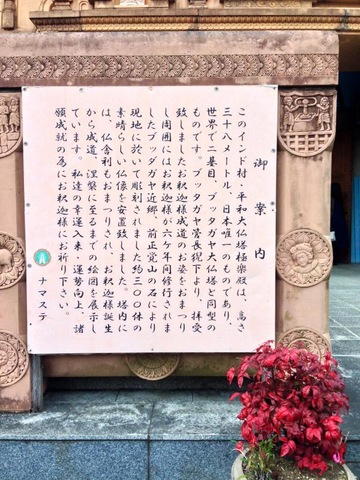 御案内
このインド村・平和大仏塔極楽殿は、高さ
三十八メートル・日本唯一のものであり、
世界で二基目、ブッダガヤ大仏塔と同型の
ものです。ブッダガヤ菅長猊下より、拝受
致しましたお釈迦様成道のお姿をおまつり
し周囲にはお釈迦様が六ケ年間修行されま
したブッダガヤ近郷、前正覚山の石により
現地に於いて彫刻されました約三〇〇体の
素晴らしい仏像を安置致しました。塔内に
は、仏舎利もおまつりされ、お釈迦様誕生
から成道、涅槃に至るまでの絵図を展示し
ています。私達の幸運八来・運勢向上、諸
願成就の為にお釈迦様にお祈り下さい。
ナマステ